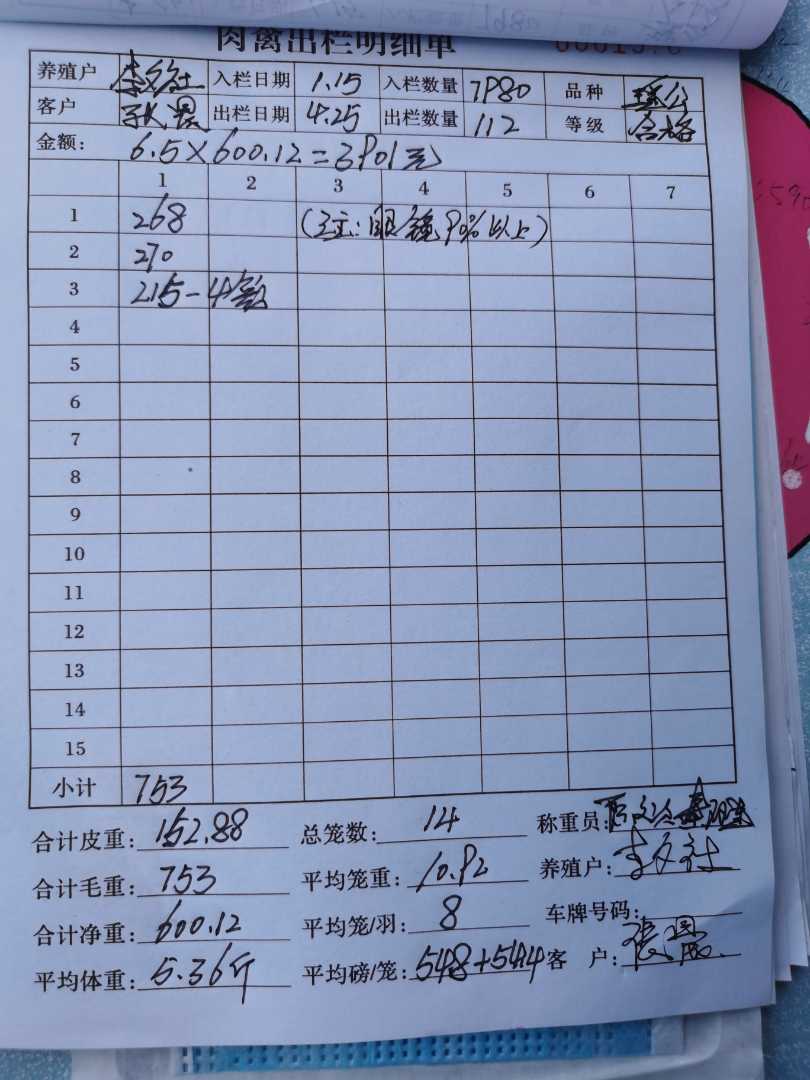 肉禽出栏明细单
养殖户 李文社 入栏日期 1.15 入栏数量 7980 品种
客户 张果 出栏日期 4.25 出栏数量 112 等级 合格
金额: 6.5×600.12=3901元
1 2 3 4 5 6 7
1 268 (注:眼镜90%以上)
2 270
3 215-4教
4
5
6
7
8
9
10
11
12
13
14
15
小计 753
合计皮重: 152.88 总笼数: 14 称重员:
合计毛重: 753 平均笼重: 10.92 养殖户: 李文社
合计净重: 600.12 平均笼/羽: 8 车牌号码:
平均体重: 5.36斤 平均磅/笼: 548+544 客 户: